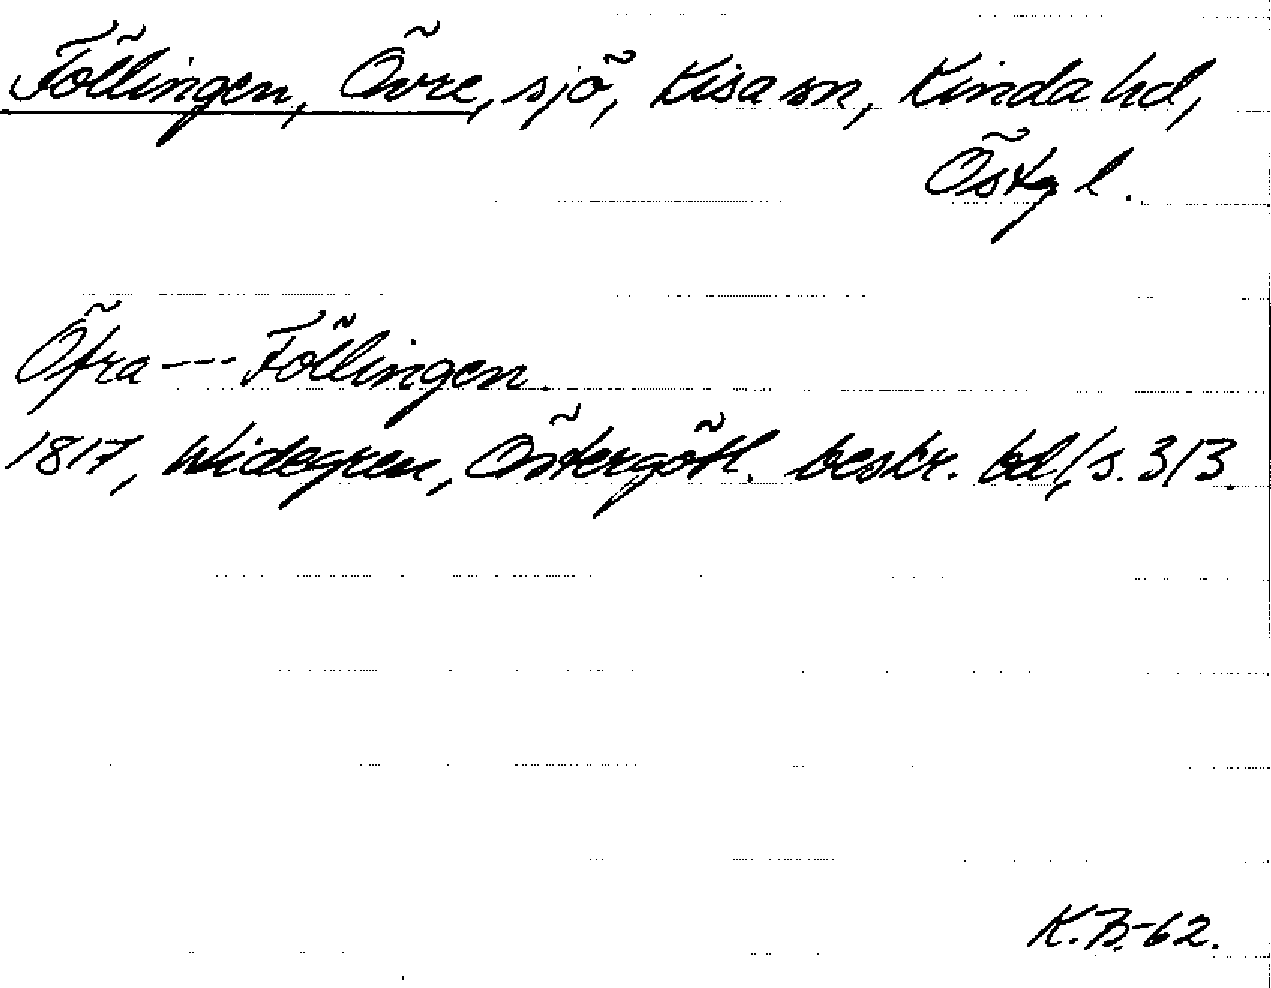 Föllingen, Övre, sjö, Kisa sn, Kinda hd,
Östg l.
Öfra --- Föllingen.
1817, Widegren, Östergötl. beskr. bd 1, s. 313.
K.B-62.